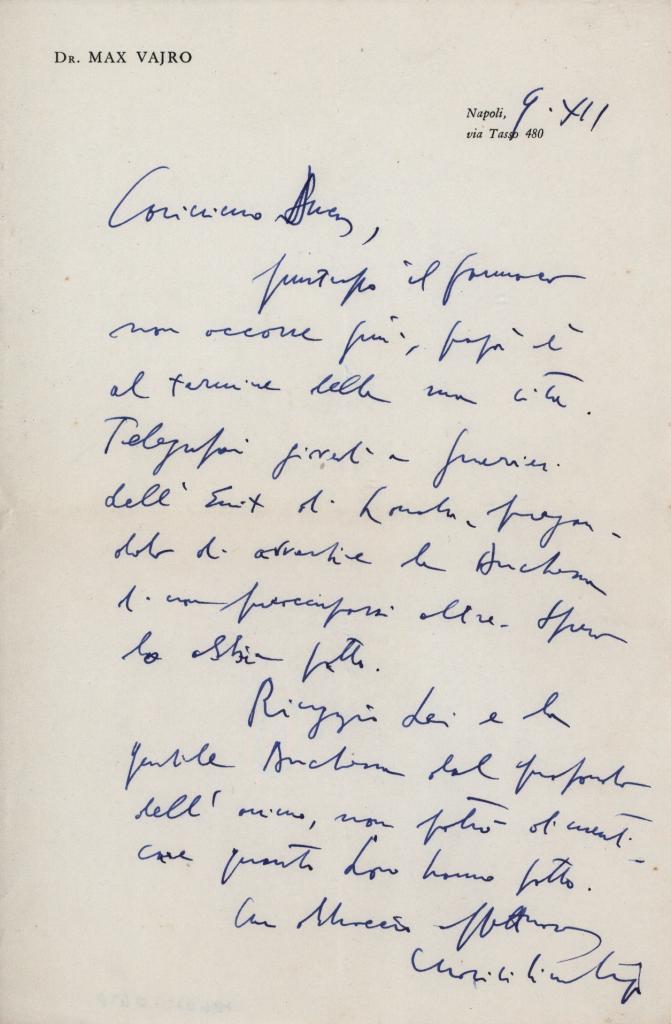 Dr. MAX VAJRO
Napoli, 9. XII
via Tasso 480
Carissimo Duca,
purtroppo il farmaco
non occorre più, papà è
al termine della sua vita.
Telegrafai giovedì a Guerrieri
dell'Enit di Londra, pregan-
dolo di avvertire la Duchessa
di non preoccuparsi oltre. Spero
lo abbia fatto.
Ringrazio Lei e la
gentile Duchessa dal profondo
dell'animo, non potrò dimenti-
care quanto Loro hanno fatto.
Un abbraccio affettuoso